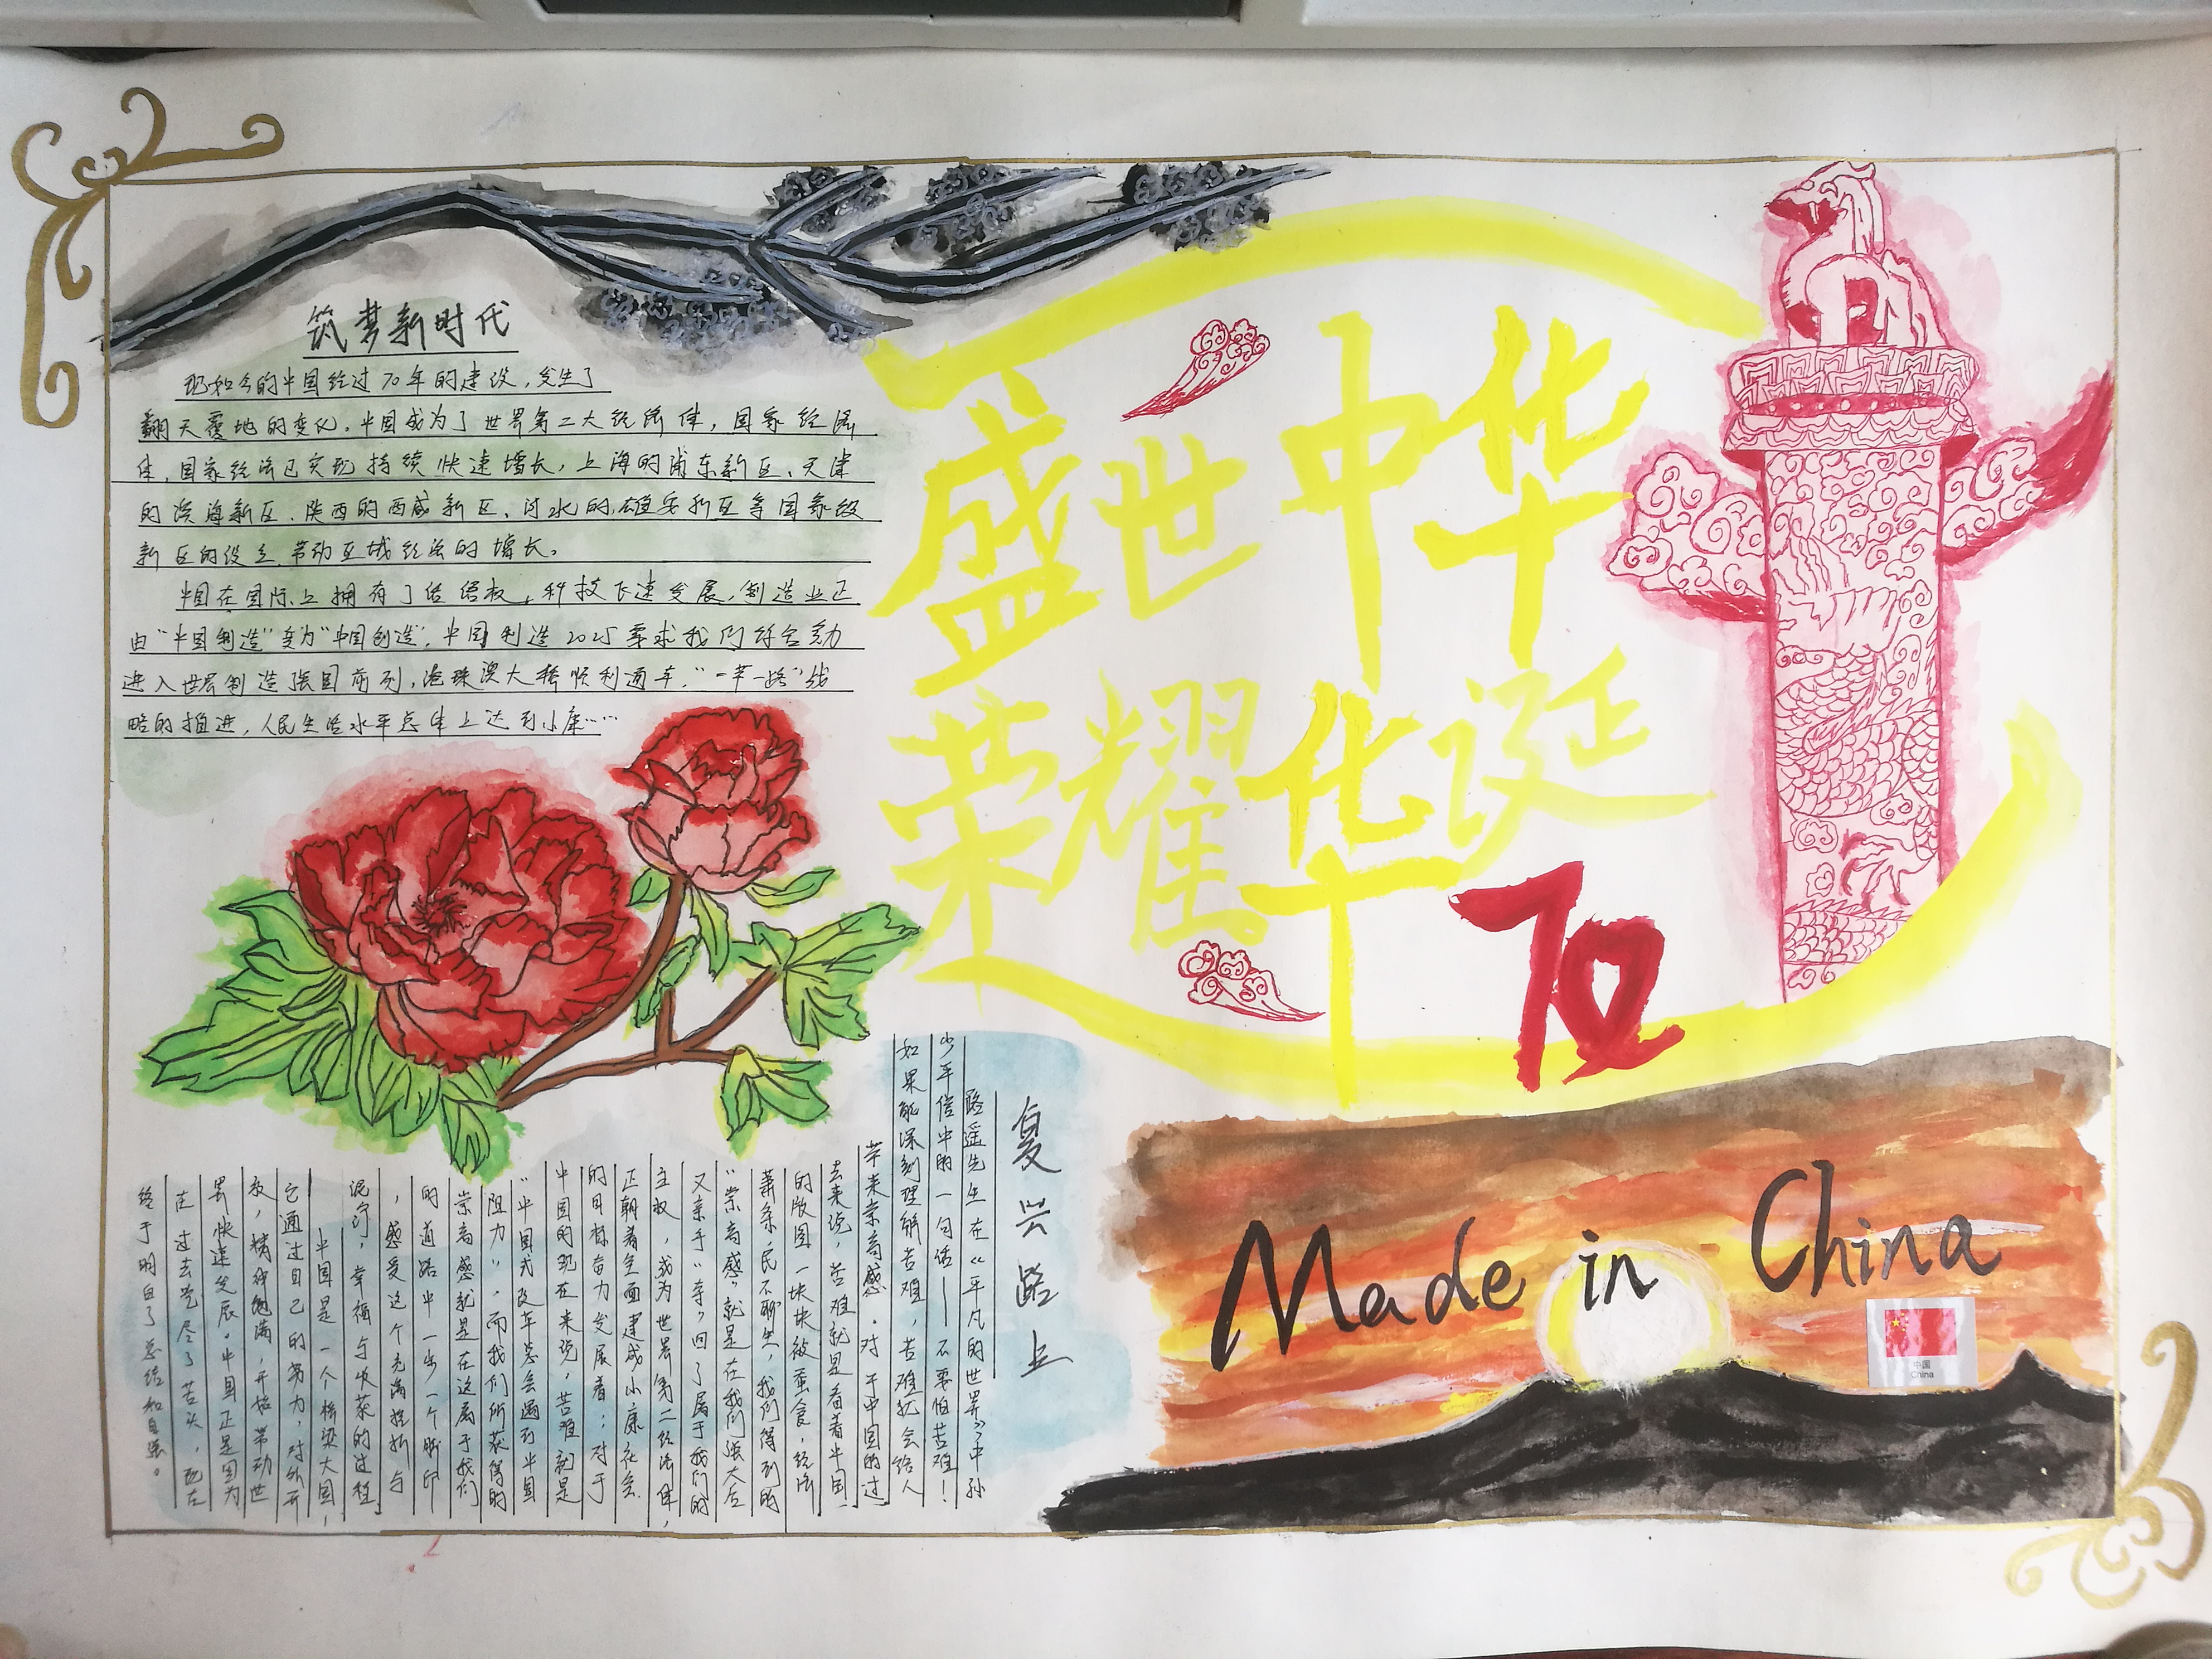 筑梦新时代
现如今的中国经过70年的建设，发生了
翻天覆地的变化，中国成为了世界第二大经济体，国家经济
体，国家经济已实现持续快速增长，上海的浦东新区、天津
的滨海新区、陕西的西咸新区、河北的雄安新区等国家级
新区的设立，带动区域经济的增长。
中国在国际上拥有了话语权，科技飞速发展，制造业正
由“中国制造”变为“中国创造”，中国制造2025要求我们
进入世界制造强国前列，港珠澳大桥顺利通车，“一带一路”战
略的推进，人民生活水平总体上达到小康……
盛世中华
荣耀华诞
70
Made in China
中国
China
复兴路上
路遥先生在《平凡的世界》中孙
少平信中的一句话——不要怕苦难！
如果能深刻理解苦难，苦难就会给人
带来崇高感。对于中国的过
去来说，苦难就是看着中国
的版图一块块被蚕食，经济
萧条，民不聊生，我们得到的
“崇高感”就是在我们强大后
又亲手“夺”回了属于我们的
主权，成为世界第二经济体，
正朝着全面建成小康社会
的目标奋力发展着；对于
中国的现在来说，苦难就是
“中国式改革总会遇到中国
阻力”，而我们所获得的
崇高感就是在这属于我们
的道路中一步一个脚印
，感受这个充满挫折与
泥泞，幸福与收获的过程
中国是一个桥梁大国，
它通过自己的努力，对外开
放，精神饱满，开始带动世
界快速发展。中国正是因为
在过去吃尽了苦头，现在
终于明白了总结和自强。